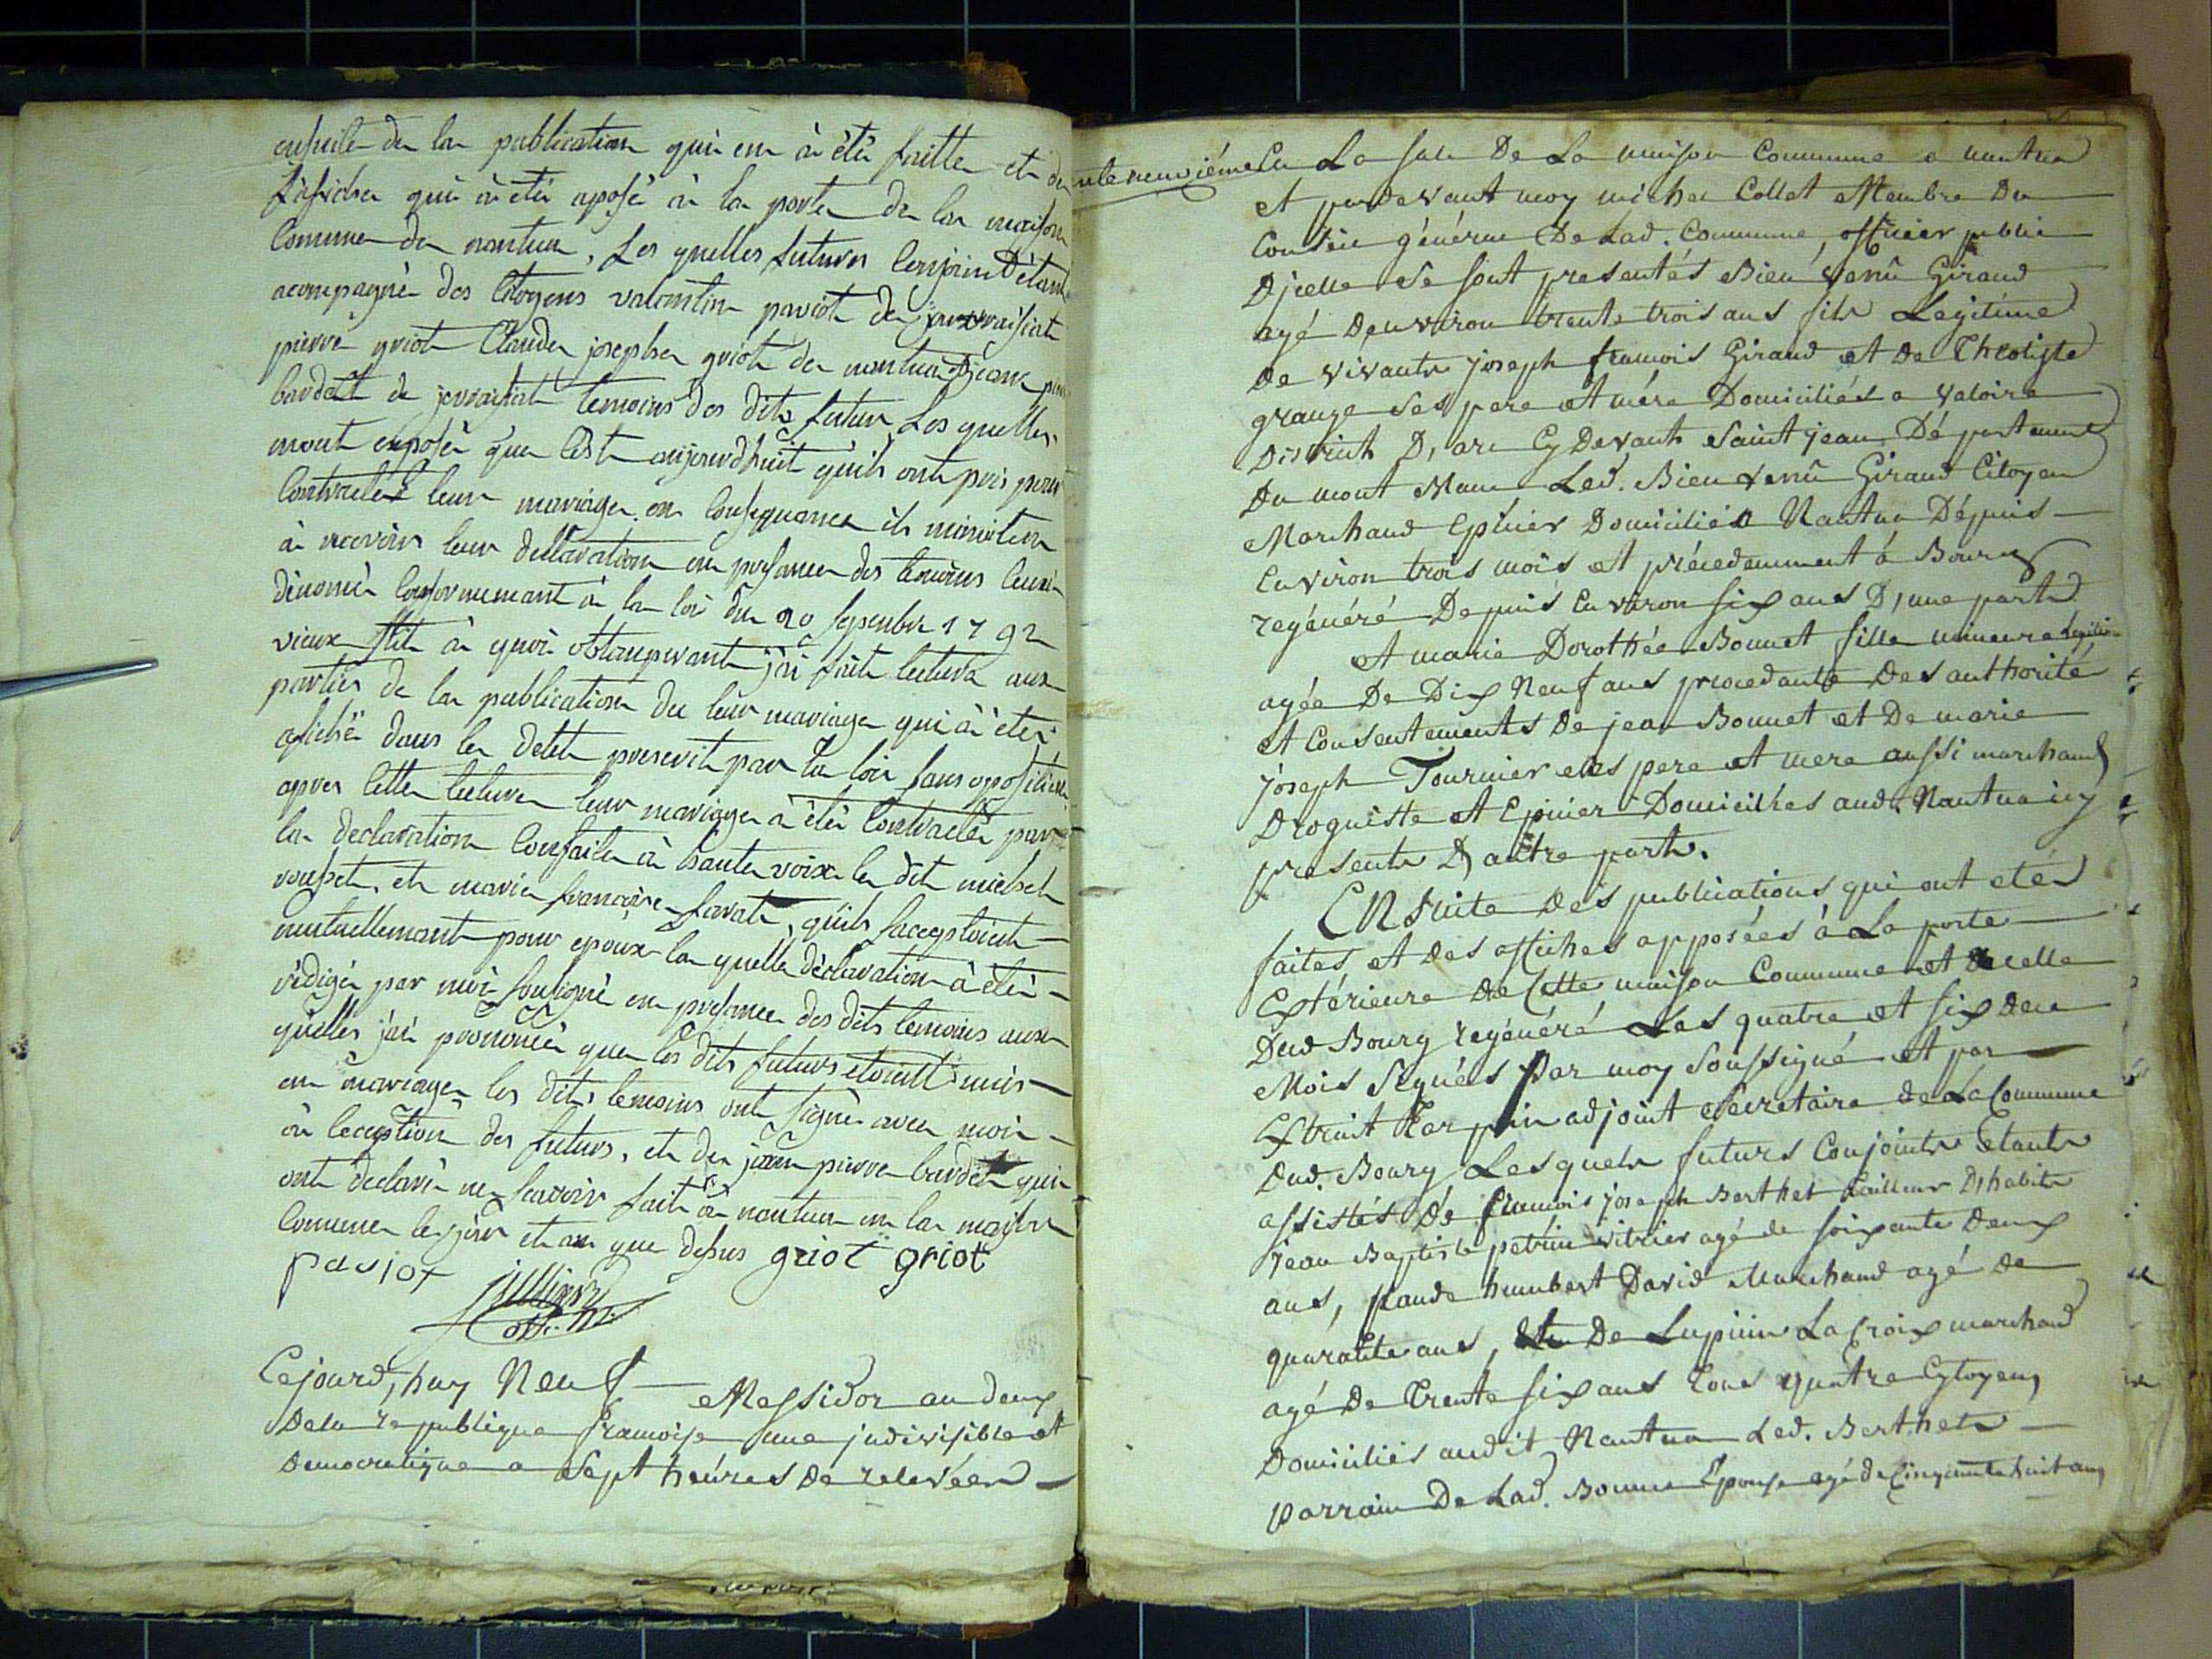 ensuite de la publication qui en à été faitte et de
l'afiche qui à été aposé à la porte de la maison
Commune de nantua, Les quelles futures Conjoint étant
acompagné des Citoyens valentin paviot de
pierre griot Claude josepher griot de nantua jean
bardet de temoins des dits futur Les quelles
mont exposé que C'est aujourdhuit qu'ils ont pris pour
Contracter leur mariage en Consequance ils minvitent
à recevoir leur déclaration en presance des temoins
dénomé Conformemant à la loi du 20 septembre 1792
vieux stile à quoi obtemperant j'ai fait lecture aux
parties de la publication de leur mariage qui à été
afiché dans le delet prescrit par la loi sans oposition
apres cette lecture leur mariage à été Contracté par
la declaration Confaite à haute voix le dit michel
et marie françoise favate, quils sacceptoient
mutuellemant pour epoux la quelle déclaration à été
rédigé par moi sousigné en presance des dits temoins aux
quelles j'ai prononcé que les dits futurs etoient unis
en mariage les dits temoins ont signé avec moi
à leception des futurs, et de jean pierre bardet qui
ont declaré ne scavoir fait à nantua en la maison
Commune les jour et an que desus griot griot
paviot
off. p.
Cejourd,huy Neuf Messidor an deux
Dela republique francoise une indivisible et
Democratique a Sept heures De relevées
nte neuviéme En La sale De La maison Commune a nantua
et pardevant moy michel Collet Membre Du
Conseil général De Lad. Commune, officier public
D'icelle Se sont presentés Bien venû Giraud
agé Denviron trente trois ans fils Legitime
De vivants joseph francois Giraud et De Theotiste
grange Ses pere et mére Domiciliés a Valoire
District D, arc Cy Devant Saint jean Département
Du mont Blanc Led. Bien Venû Giraud Citoyen
Marchand Epicier Domicilié a Nantua Dépuis
Environ trois mois et précedemment á Bourg
regénéré Depuis Environ six ans D, une part
et marie Dorothée Bonnet fille mineure Legitime
agée De Dix Neuf ans procedante Des authorité
et Consentements De jean Bonnet et De marie
joseph Tournier ses pere et mere aussi marchand
Droguiste et Epicier Domiciliés aud. Nantua icy
presents D, autre part.
ENSuite Des publications qui ont été
faites et Des affiches apposées á La porte
Extérieure De Cette maison Commune et De celle
Dud Bourg regénéré Les quatre et six Dece
Mois Signées Par moy Soussigné et par
Extrait adjoint Secretaire de La Commune
Dud. Bourg Lesquels futurs Conjoints Etants
assistés De francois joseph Berthet tailleur D, habits
jean Baptiste petrin vitrier agé de soixante Deux
ans, Claude humbert David Marchand agé De
quarante ans, De Lupicin La Croix marchand
agé De Trente six ans Tous quatre Cytoyens
Domiciliés audit Nantua Led. Berthet
parrain De Lad. Bonnet Epouse agé de Cinquante huit ans